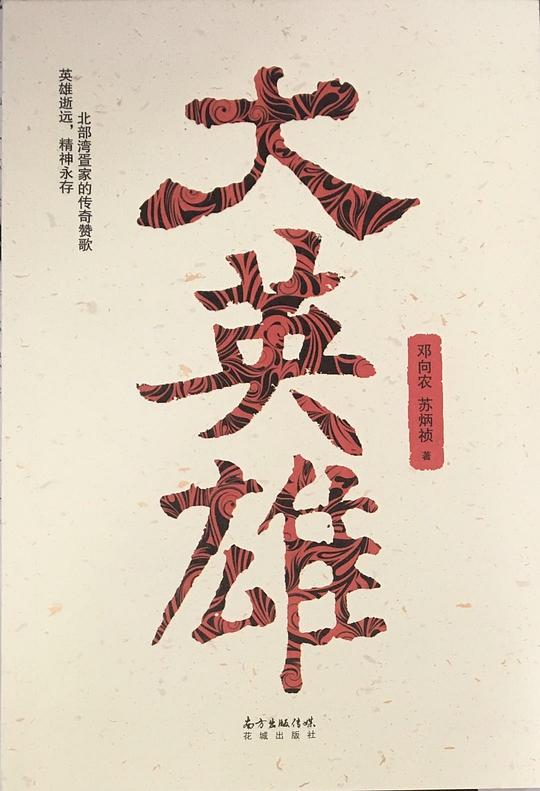 大英雄
英雄逝远，精神永存
北部湾疍家的传奇赞歌
邓向农 苏炳祯 著
南方出版传媒
花城出版社